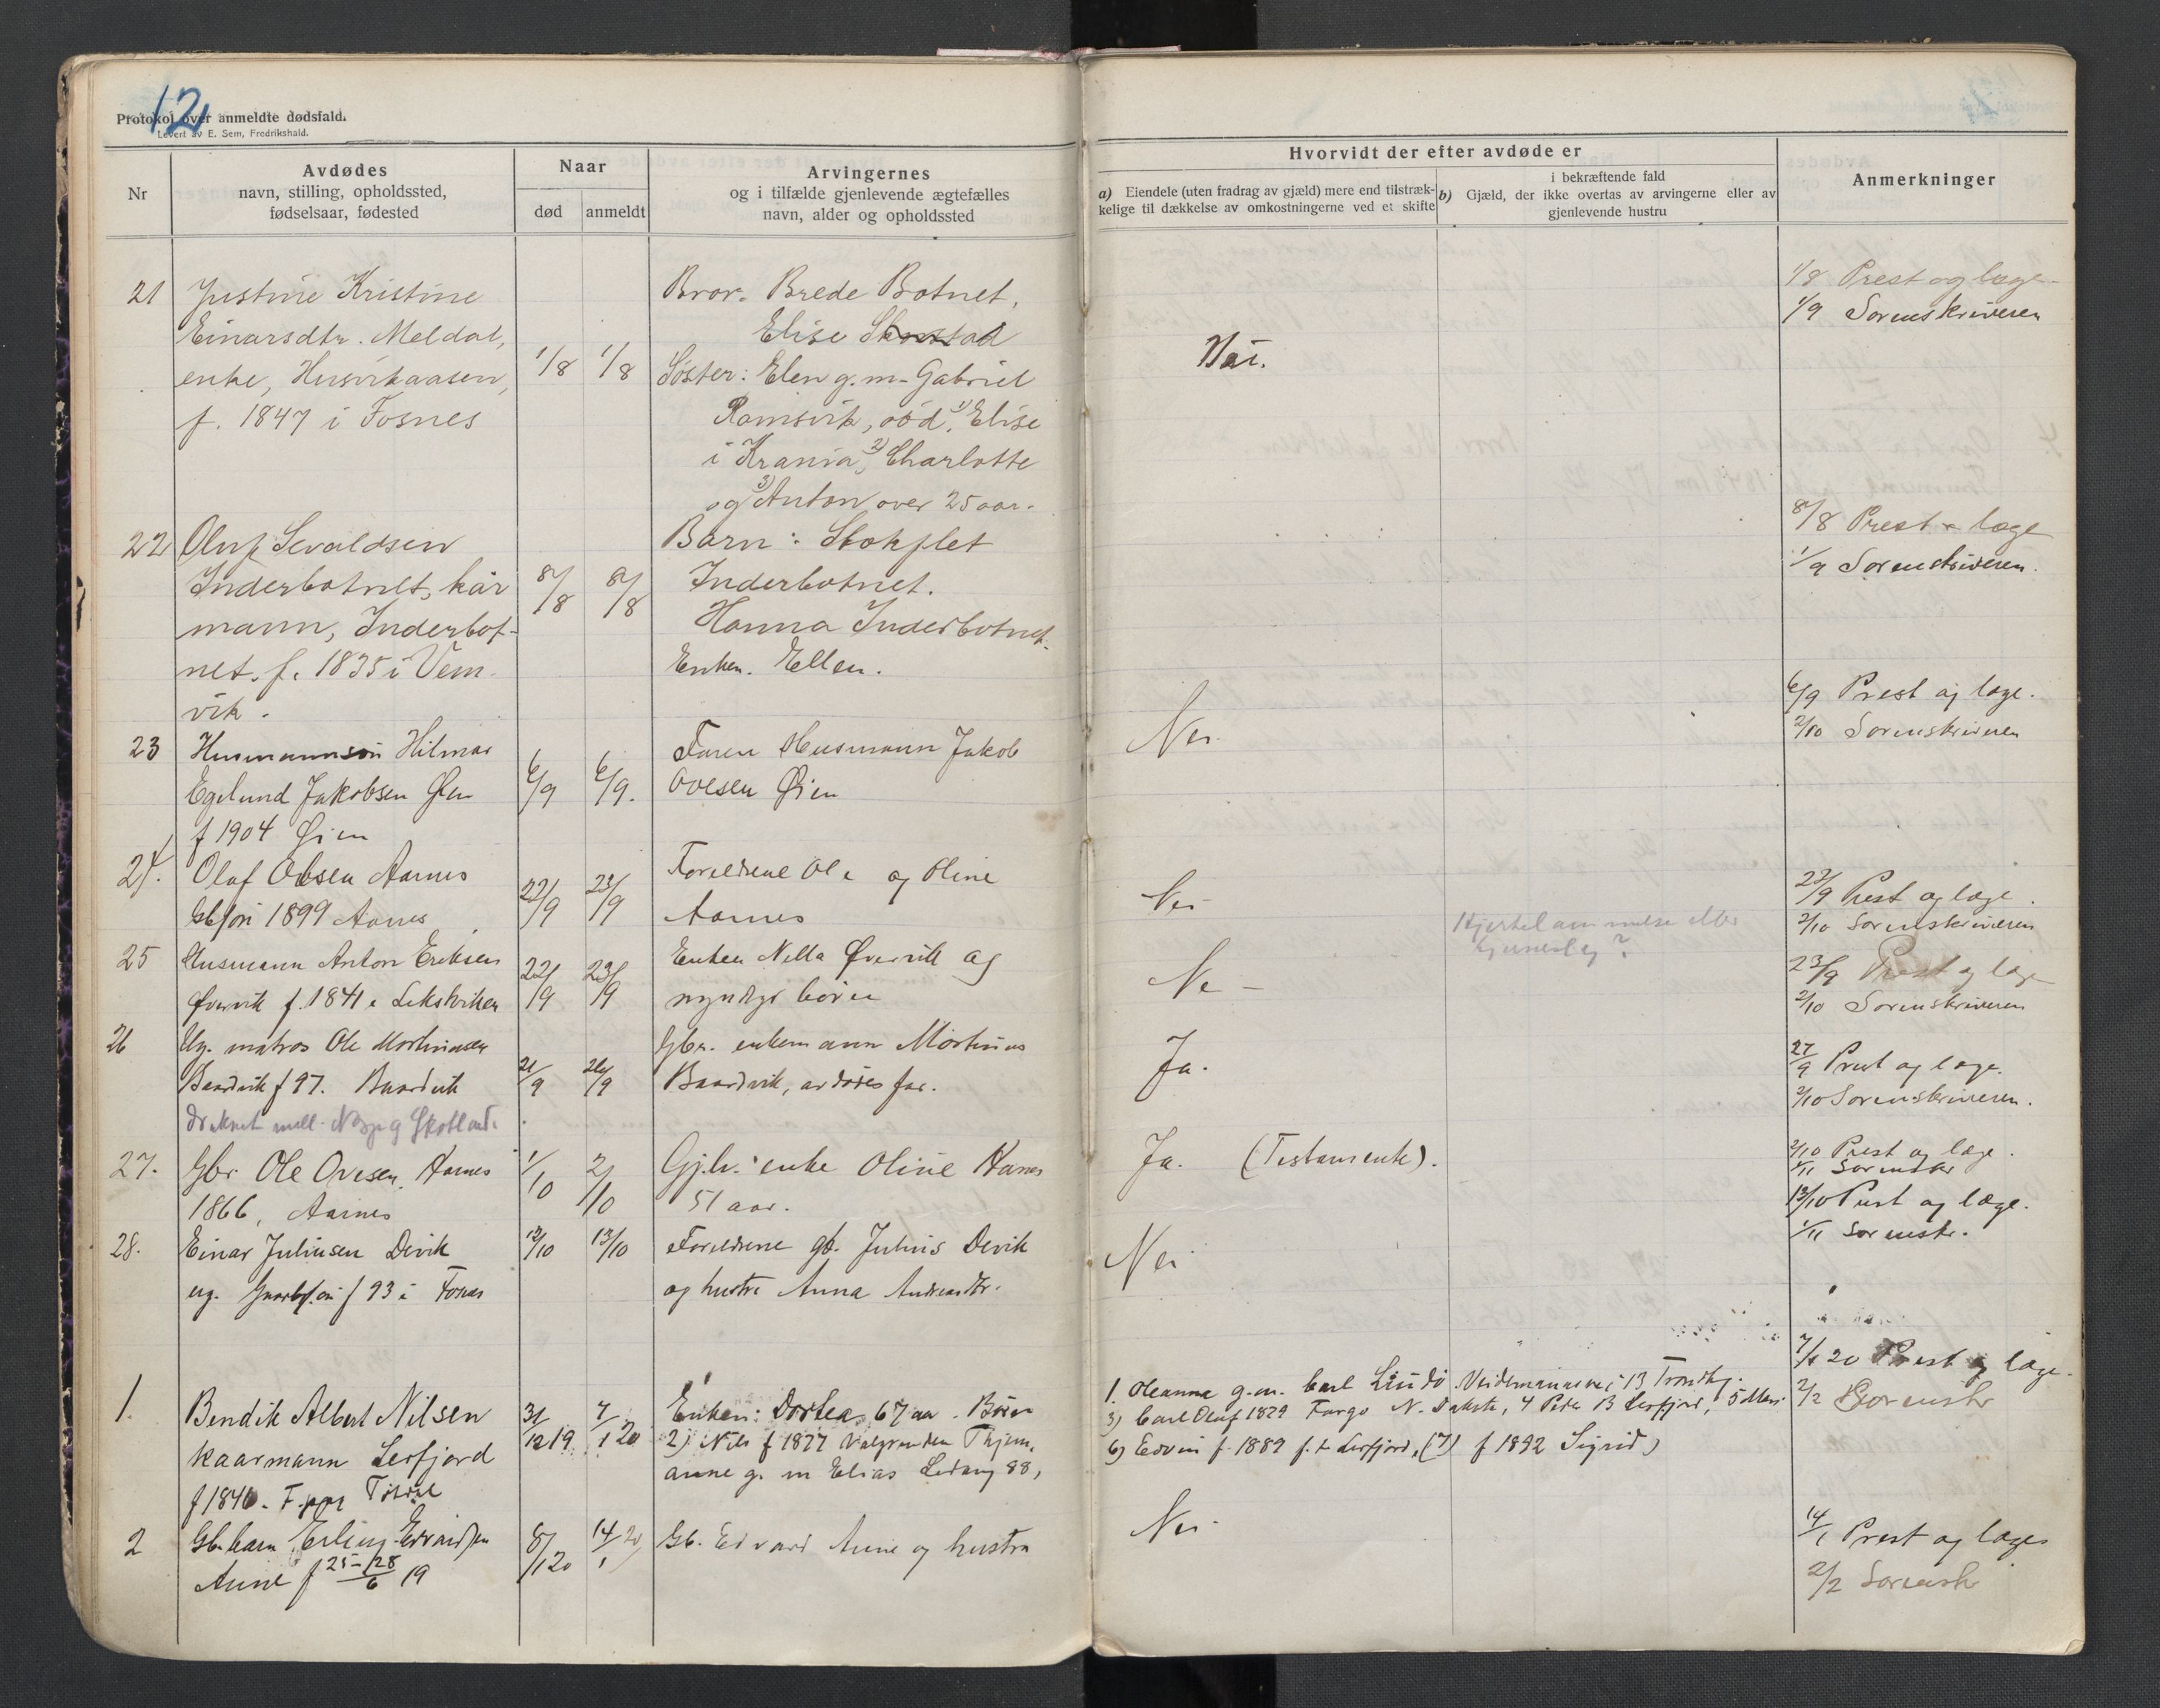 12
Protokol over anmeldte dødsfald.
Levert av E. Sem, Fredrikshald.
Nr
Avdødes
navn, stilling, opholdssted,
fødselsaar, fødested
Naar
død
anmeldt
Arvingernes
og i tilfælde gjenlevende ægtefælles
navn, alder og opholdssted
Hvorvidt der efter avdøde er
a) Eiendele (uten fradrag av gjæld) mere end tilstræk-
kelige til dækkelse av omkostningerne ved et skifte
i bekræftende fald
b) Gjæld, der ikke overtas av arvingerne eller av
gjenlevende hustru
Anmerkninger
21
Justine Kristine
Einarsdtr. Meldal,
enke, Husvikaasen,
f. 1847 i Fosnes
1/8
1/8
Bror. Brede Botnet,
Elise
Søster: Elen g.m. Gabriel
Ramsvik, død. 1) Elise
i Krania, 2) Charlotte
og 3) Anton over 25 aar.
Nei.
1/8 Prest og læge
1/9 Sorenskriveren
22
Oluf Sevaldsen
Inderbotnet, kår
mann, Inderbot-
net. f. 1835 i Vem-
vik.
8/8
8/8
Barn:
Inderbotnet.
Hanna Inderbotnet.
Enken. Ellen.
8/8 Prest læge
1/9 Sorenskriveren.
23
Husmannsøn Hilmar
Egelund Jakobsen Øien
f 1904 Øien
6/9
6/9.
Faren Husmann Jakob
Ovesen Øien
Nei.
6/9 Prest og læge.
2/10 Sorenskriveren
24.
Olaf Olsen Aarnes
1899 Aarnes
22/9
23/9
Forældrene Ole og Oline
Aarnes
Nei
23/9 Prest og læge.
2/10 Sorenskriveren
25
Husmann Anton Eriksen
Øvervik f. 1841 i Leksviken
22/9
23/9
Enken Nella Øvervik og
myndige børn
Nei
Hjertelammelse eller
hjerneslag?
23/9 Prest og læge
2/10 Sorenskriveren
26
Ug. matros Ole Mortinusen
Baardvik f 97. Baardvik
druknet mell. Norge og Skotland.
21/9
Gbr. enkemann Mortinus
Baardvik, avdødes far.
Ja.
27/9 Prest og læge.
2/10 Sorenskriveren.
27.
Gbr Ole Ovesen Aarnes
1866, Aarnes
1/10
2/10
Gjlv. enke Oline Aarnes
51 aar.
Ja. (Testamente).
2/10 Prest og læge.
1/11 Sorenskr
28.
Einar Juliusen Devik
ug. f 93 i Fosnes
12/10
13/10
Forældrene gb. Julius Devik
og hustru Anna Andreasdtr.
Nei
13/10 Prest og læge.
1/11 Sorenskr.
1.
Bendik Albert Nilsen
Kaarmann Lerfjord
f 1840.
31/12 19
7/1 20
Enken: Dortea 67 aar. Børn
2) Nils f 1877
anne g. m Elias 88,
1. Oleanna g.m. Carl Lindø Veidemannsvei 13 Trondhj.
3) Carl Oluf 1879 Fargo N. Dakota, 4 Lerfjord,
6) Edvin f. 1889 Lerfjord, (7) f 1892 Sigrid)
7/1 20 Prest og læge.
2/2 Sorenskr
2
Gb. barn Erling Edvardsen
Aune f 19
8/1 20
14/1 20
Gb. Edvard Aune og hustru
Nei
14/1 Prest og læge
2/2 Sorenskr